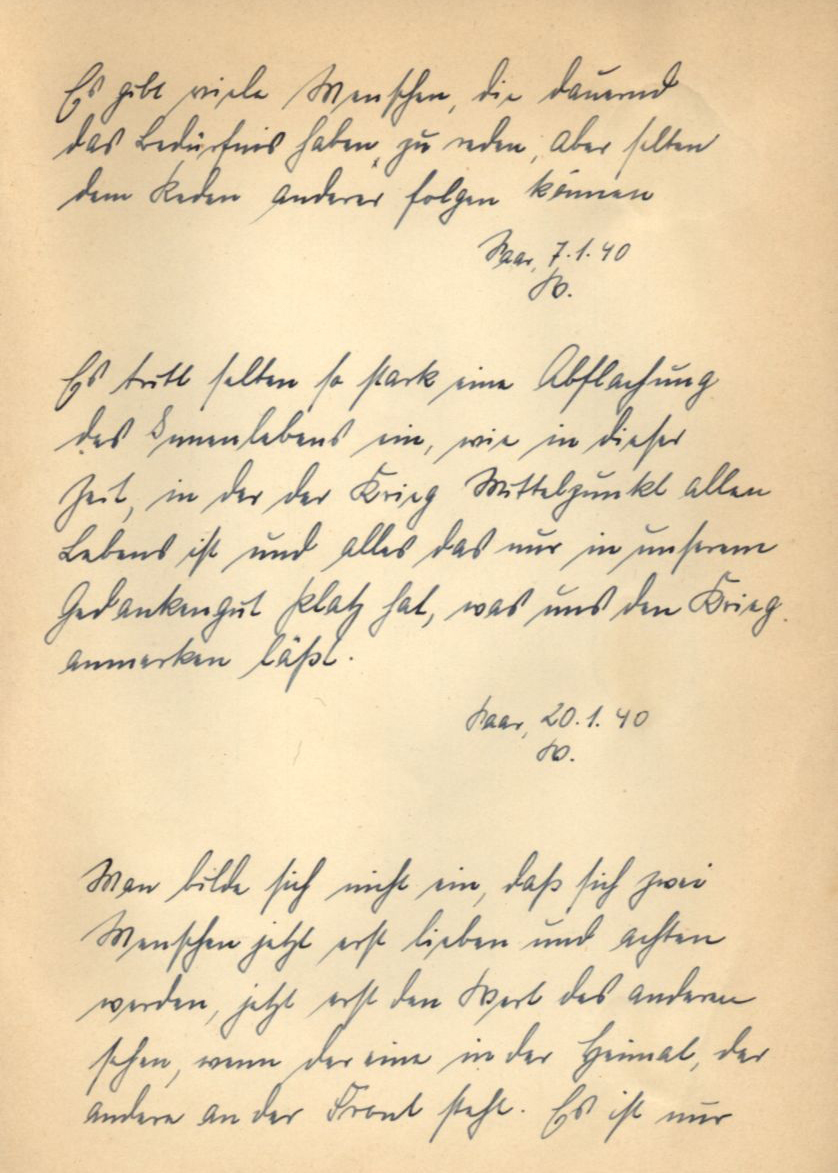 Es gibt viele Menschen, die dauernd
das Bedürfnis haben, zu reden, aber selten
dem Reden anderer folgen können
Saar, 7.1.40
W.
Es tritt selten so stark eine Abflachung
des Innenlebens ein, wie in dieser
Zeit, in der der Krieg Mittelpunkt allen
Lebens ist und alles das nur in unserem
Gedankengut Platz hat, was uns den Krieg
anmerken läßt.
Saar, 20.1.40
W.
Man bilde sich nicht ein, daß sich zwei
Menschen jetzt erst lieben und achten
werden, jetzt erst den Wert des anderen
sehen, wenn der eine in der Heimat, der
andere an der Front steht. Es ist nur